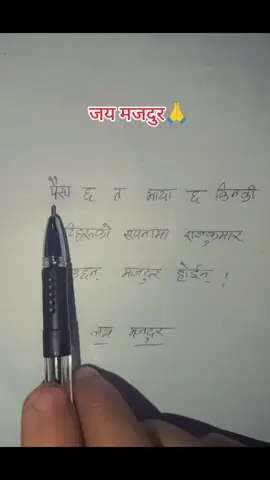 जय मजदुर🙏
पैसा छ त माया छ किनकी
सपनामा राजकुमार
मजदुर होईन् !
जय मजदुर